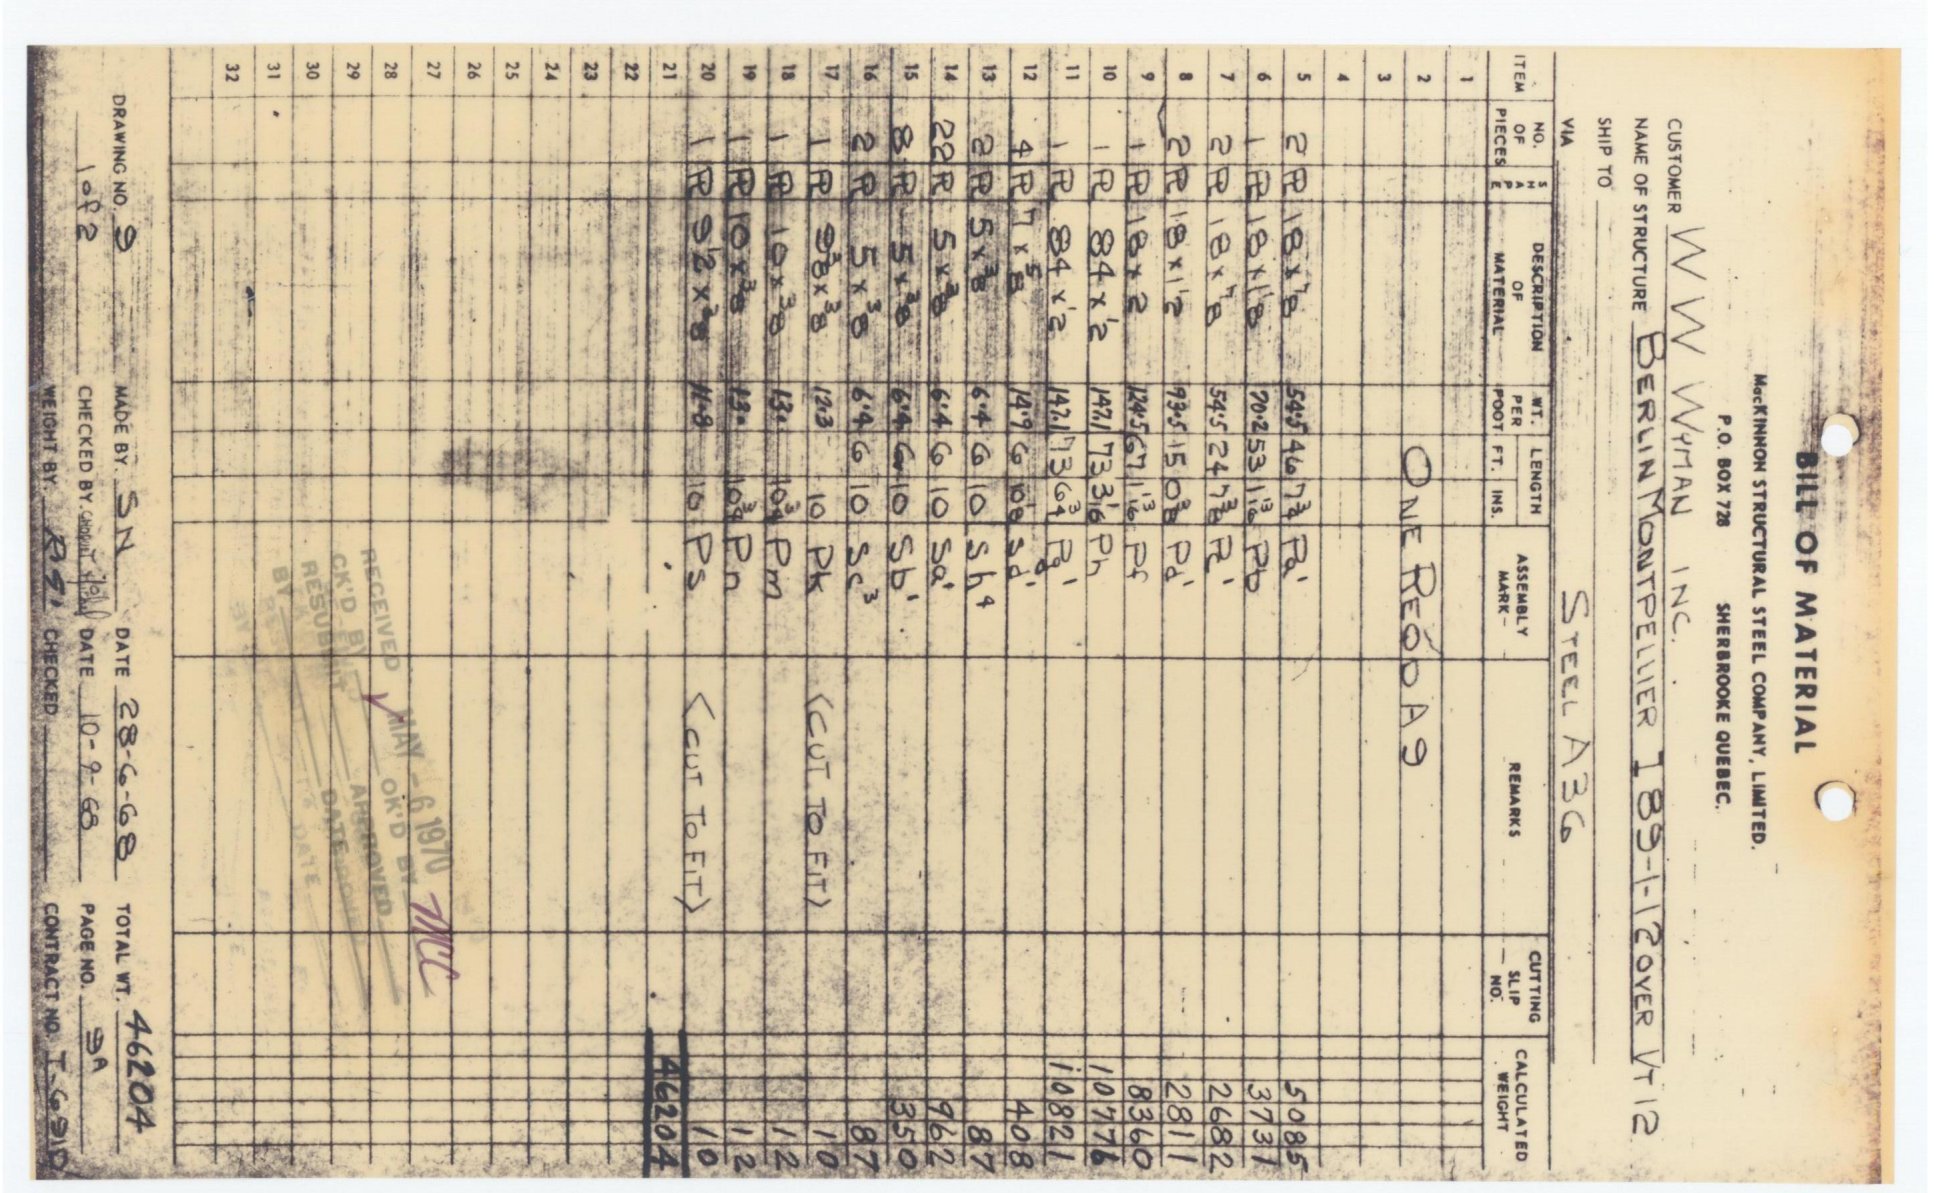 BILL OF MATERIAL
MacKINNON STRUCTURAL STEEL COMPANY, LIMITED.
P.O. BOX 728 SHERBROOKE QUEBEC.
CUSTOMER W W W WYMAN INC.
NAME OF STRUCTURE BERLIN MONTPELLIER I 89-1-12 OVER VT 12
SHIP TO
VIA STEEL A36
ITEM NO. OF PIECES SHAPE DESCRIPTION OF MATERIAL WT. PER FOOT LENGTH FT. INS. ASSEMBLY MARK REMARKS CUTTING SLIP NO. CALCULATED WEIGHT
1
2 ONE REQD A9
3
4
5 2 PL 18 x 7/8 54.5 46 7 3/4 Pa' 5085
6 1 PL 18 x 1 1/8 70.2 53 1 13/16 Pb 3731
7 2 PL 18 x 7/8 54.5 24 7 3/8 2682
8 2 PL 18 x 1 1/2 93.5 15 0 3/8 Pd' 2811
9 1 PL 18 x 2 124.5 67 1 13/16 Pf 8360
10 1 PL 84 x 1/2 147.1 73 3 1/16 Ph 10776
11 1 PL 84 x 1/2 147.1 73 6 3/4 Pg' 10821
12 4 PL 7 x 5/8 14.9 6 10 1/8 Sd' 408
13 2 PL 5 x 3/8 6.4 6 10 Sh4 87
14 22 PL 5 x 3/8 6.4 6 10 Sa' 962
15 8 PL 5 x 3/8 6.4 6 10 Sb' 350
16 2 PL 5 x 3/8 6.4 6 10 Sc3 87
17 1 PL 9 3/8 x 3/8 12.3 10 Pk <CUT TO FIT> 10
18 1 PL 10 x 3/8 13. 10 3/4 Pm 12
19 1 PL 10 x 3/8 13. 10 3/4 Pn 12
20 1 PL 9 1/2 x 3/8 11.8 10 Ps <CUT TO FIT> 10
21 46204
22
23
24
25
26
27
28
29
30
31
32
RECEIVED MAY -6 1970
CK'D BY OK'D BY
RESUBMIT APPROVED
BY DATE
DRAWING NO. 9 MADE BY. SN DATE 28-6-68 TOTAL WT. 46204
1 of 2 CHECKED BY. DATE 10-9-68 PAGE NO. 9A
WEIGHT BY. CHECKED CONTRACT NO. T-691D